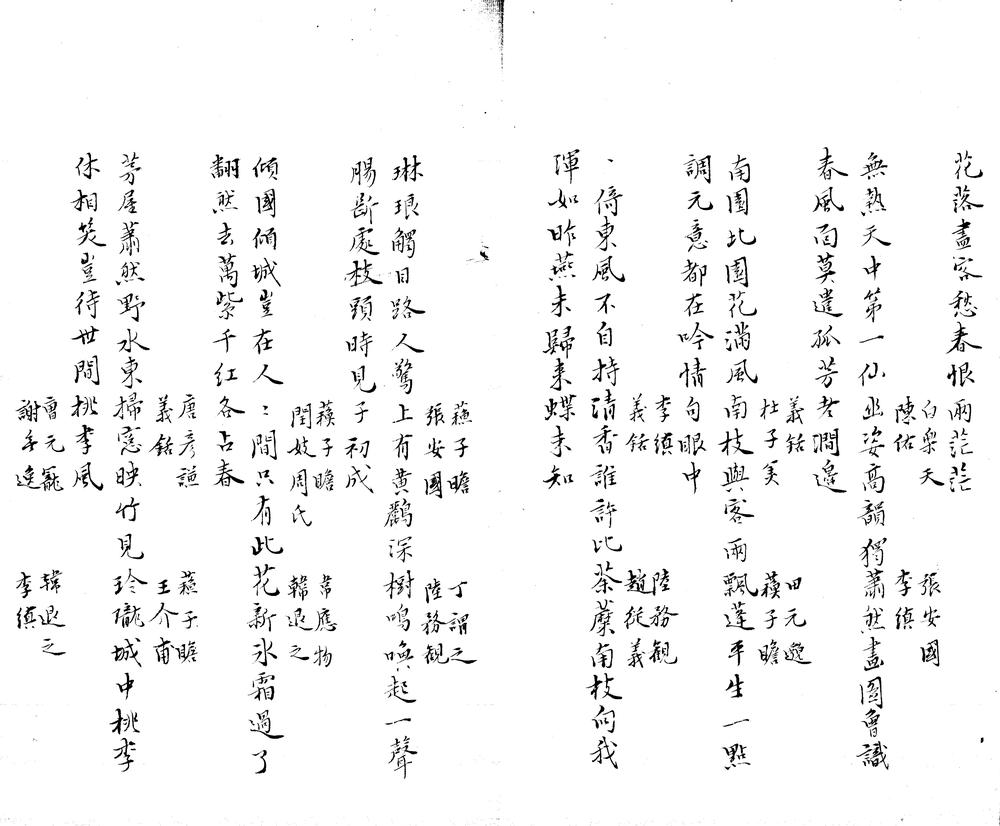 花落盡客愁春恨兩茫茫
白樂天 張安國
陳佑 李縝
無熱天中第一仙幽姿高韻獨蕭然畫圖會識
春風面莫遣孤芳老澗邊
義銛 田元邈
杜子美 蘇子瞻
南園北園花滿風南枝與客兩飄蓬平生一點
調元意都在吟情句眼中
李縝 陸務観
義銛 趙從義
、倚東風不自持清香誰許比荼蘼南枝向我
渾如昨燕未歸来蝶未知
蘇子瞻 丁謂之
張安國 陸務観
琳琅觸目路人驚上有黃鸝深樹鳴喚起一聲
腸斷處枝頭時見子初成
蘇子瞻 韋應物
閏妓周氏 韓退之
傾國傾城豈在人〻間只有此花新氷霜過了
翻然去萬紫千红各占春
唐彦謙 蘇子瞻
義銛 王介甫
茅屋蕭然野水東掃窓映竹見玲瓏城中桃李
休相笑豈待世間桃李風
曹元寵 韓退之
謝無逸 李縝